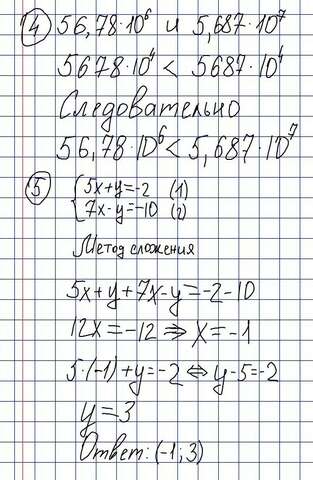 ④ 56,78·10⁶ и 5,687·10⁷
5678·10⁴ < 5687·10⁴
Следовательно
56,78·10⁶ < 5,687·10⁷
⑤ {5x+y=-2 (1)
{7x-y=-10 (2)
Метод сложения
5x+y+7x-y=-2-10
12x=-12 ⇒ x=-1
5·(-1)+y=-2 ⇔ y-5=-2
y=3
Ответ: (-1;3)